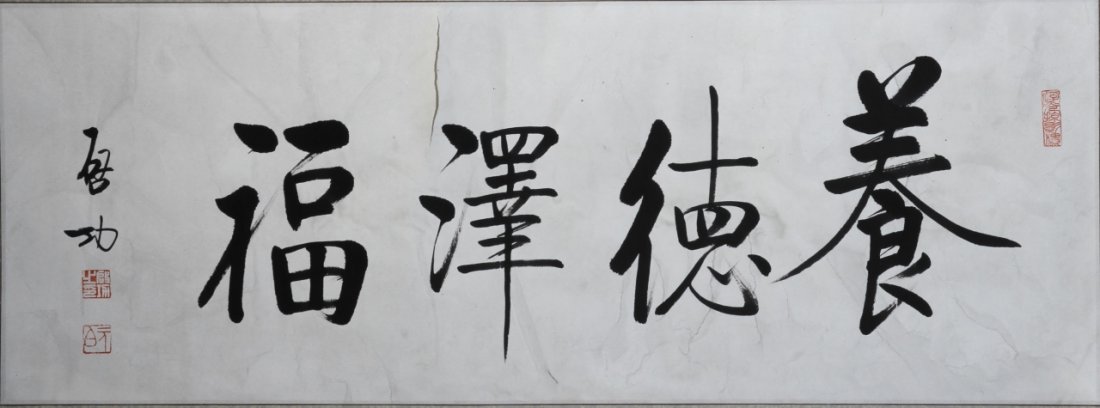 養德澤福
啓功